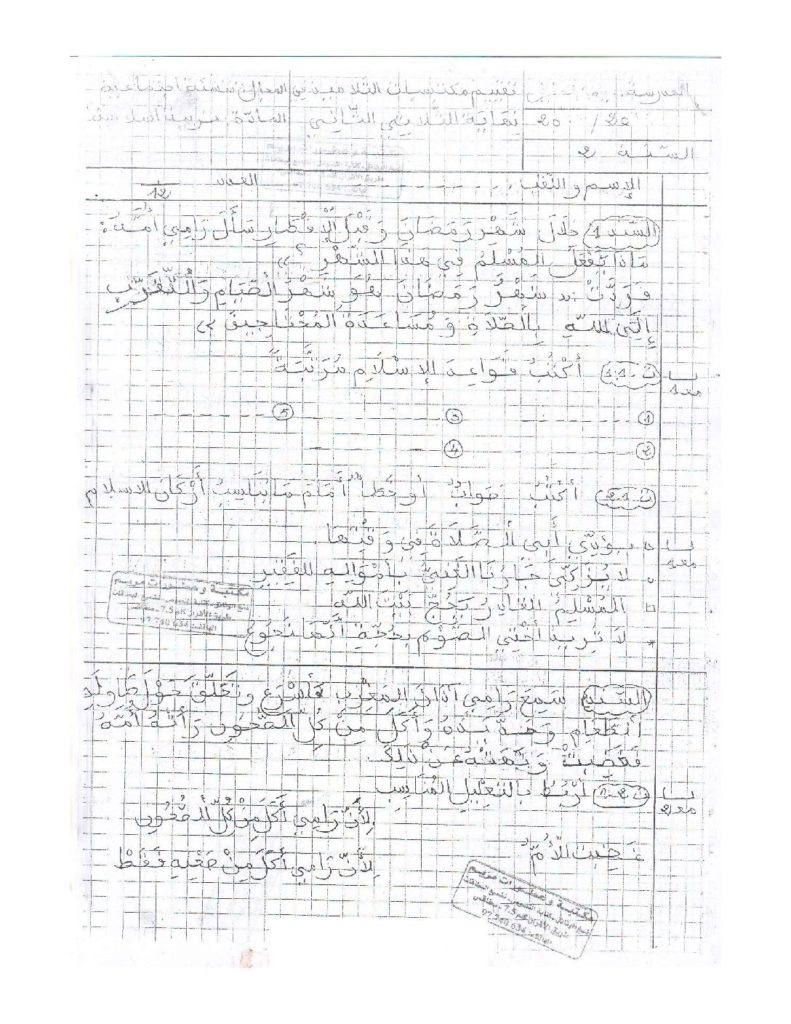 المدرسة: تقييم مكتسبات التلاميذ في المجال: تنشئة اجتماعية
20 / 20 نهاية الثلاثي الثاني المادة: تربية اسلامية
السنة 2
الإسم واللقب: العدد 12
السّند 1 خلال شَهْرِ رَمَضَانَ وَ قَبْلَ الْإِفْطَارِ سَأَلَ رَامِي أُمَّهُ:
مَاذَا يَفْعَلُ المُسْلِمُ فِي هَذَا الشَّهْرِ؟ »
فَرَدَّتْ: « شَهْرُ رَمَضَانَ هُوَ شَهْرُ الصِّيَامِ وَالتَّقَرُّبِ
إِلَى اللهِ بِالصَّلَاةِ وَ مُسَاعَدَةِ المُحْتَاجِينَ »
ت 1.1 أَكْتُبُ قَوَاعِدَ الإِسْلَامِ مُرَتَّبَةً مع1
1 3 5
2 4
ت 2.1 أَكْتُبُ صَوَابٌ أو خَطَأٌ أَمَامَ مَا يُنَاسِبُ أَرْكَانَ الاسلام
يُؤَدِّي أَبِي الصَّلَاةَ فِي وَقْتِهَا. مع1
لا يُزَكِّي جَارُنَا الغَنِيُّ بِأَمْوَالِهِ لِلفَقِيرِ
المُسْلِمُ القَادِرُ يَحُجُّ بَيْتَ اللهِ
لَا تُرِيدُ أُخْتِي الصَّوْمَ بِحُجَّةِ أَنَّهَا تَجُوعُ
مكتبة و منشورات مريم
السّند 2 سَمِعَ رَامِي آذَانَ المَغْرِبِ فَأَسْرَعَ وَتَحَلَّقَ حَوْلَ طَاوِلَةِ
الطَّعَامِ وَ مَدَّ يَدَهُ وَ أَكَلَ مِنْ كُلِّ الصُّحُونِ رَأَتْهُ أُمُّهُ
فَغَضِبَتْ وَ نَهَتْهُ عَنْ ذَلِكَ.
ت 1.2 أَرْبُطُ بِالتَّعْلِيلِ المُنَاسِبِ مع2
لِأَنَّ رَامِي أَكَلَ مِنْ كُلِّ الصُّحُونِ
غَضِبَتِ الأُمُّ
لِأَنَّ رَامِي أَكَلَ مِنْ صَحْنِهِ فَقَطْ
مكتبة و منشورات مريم